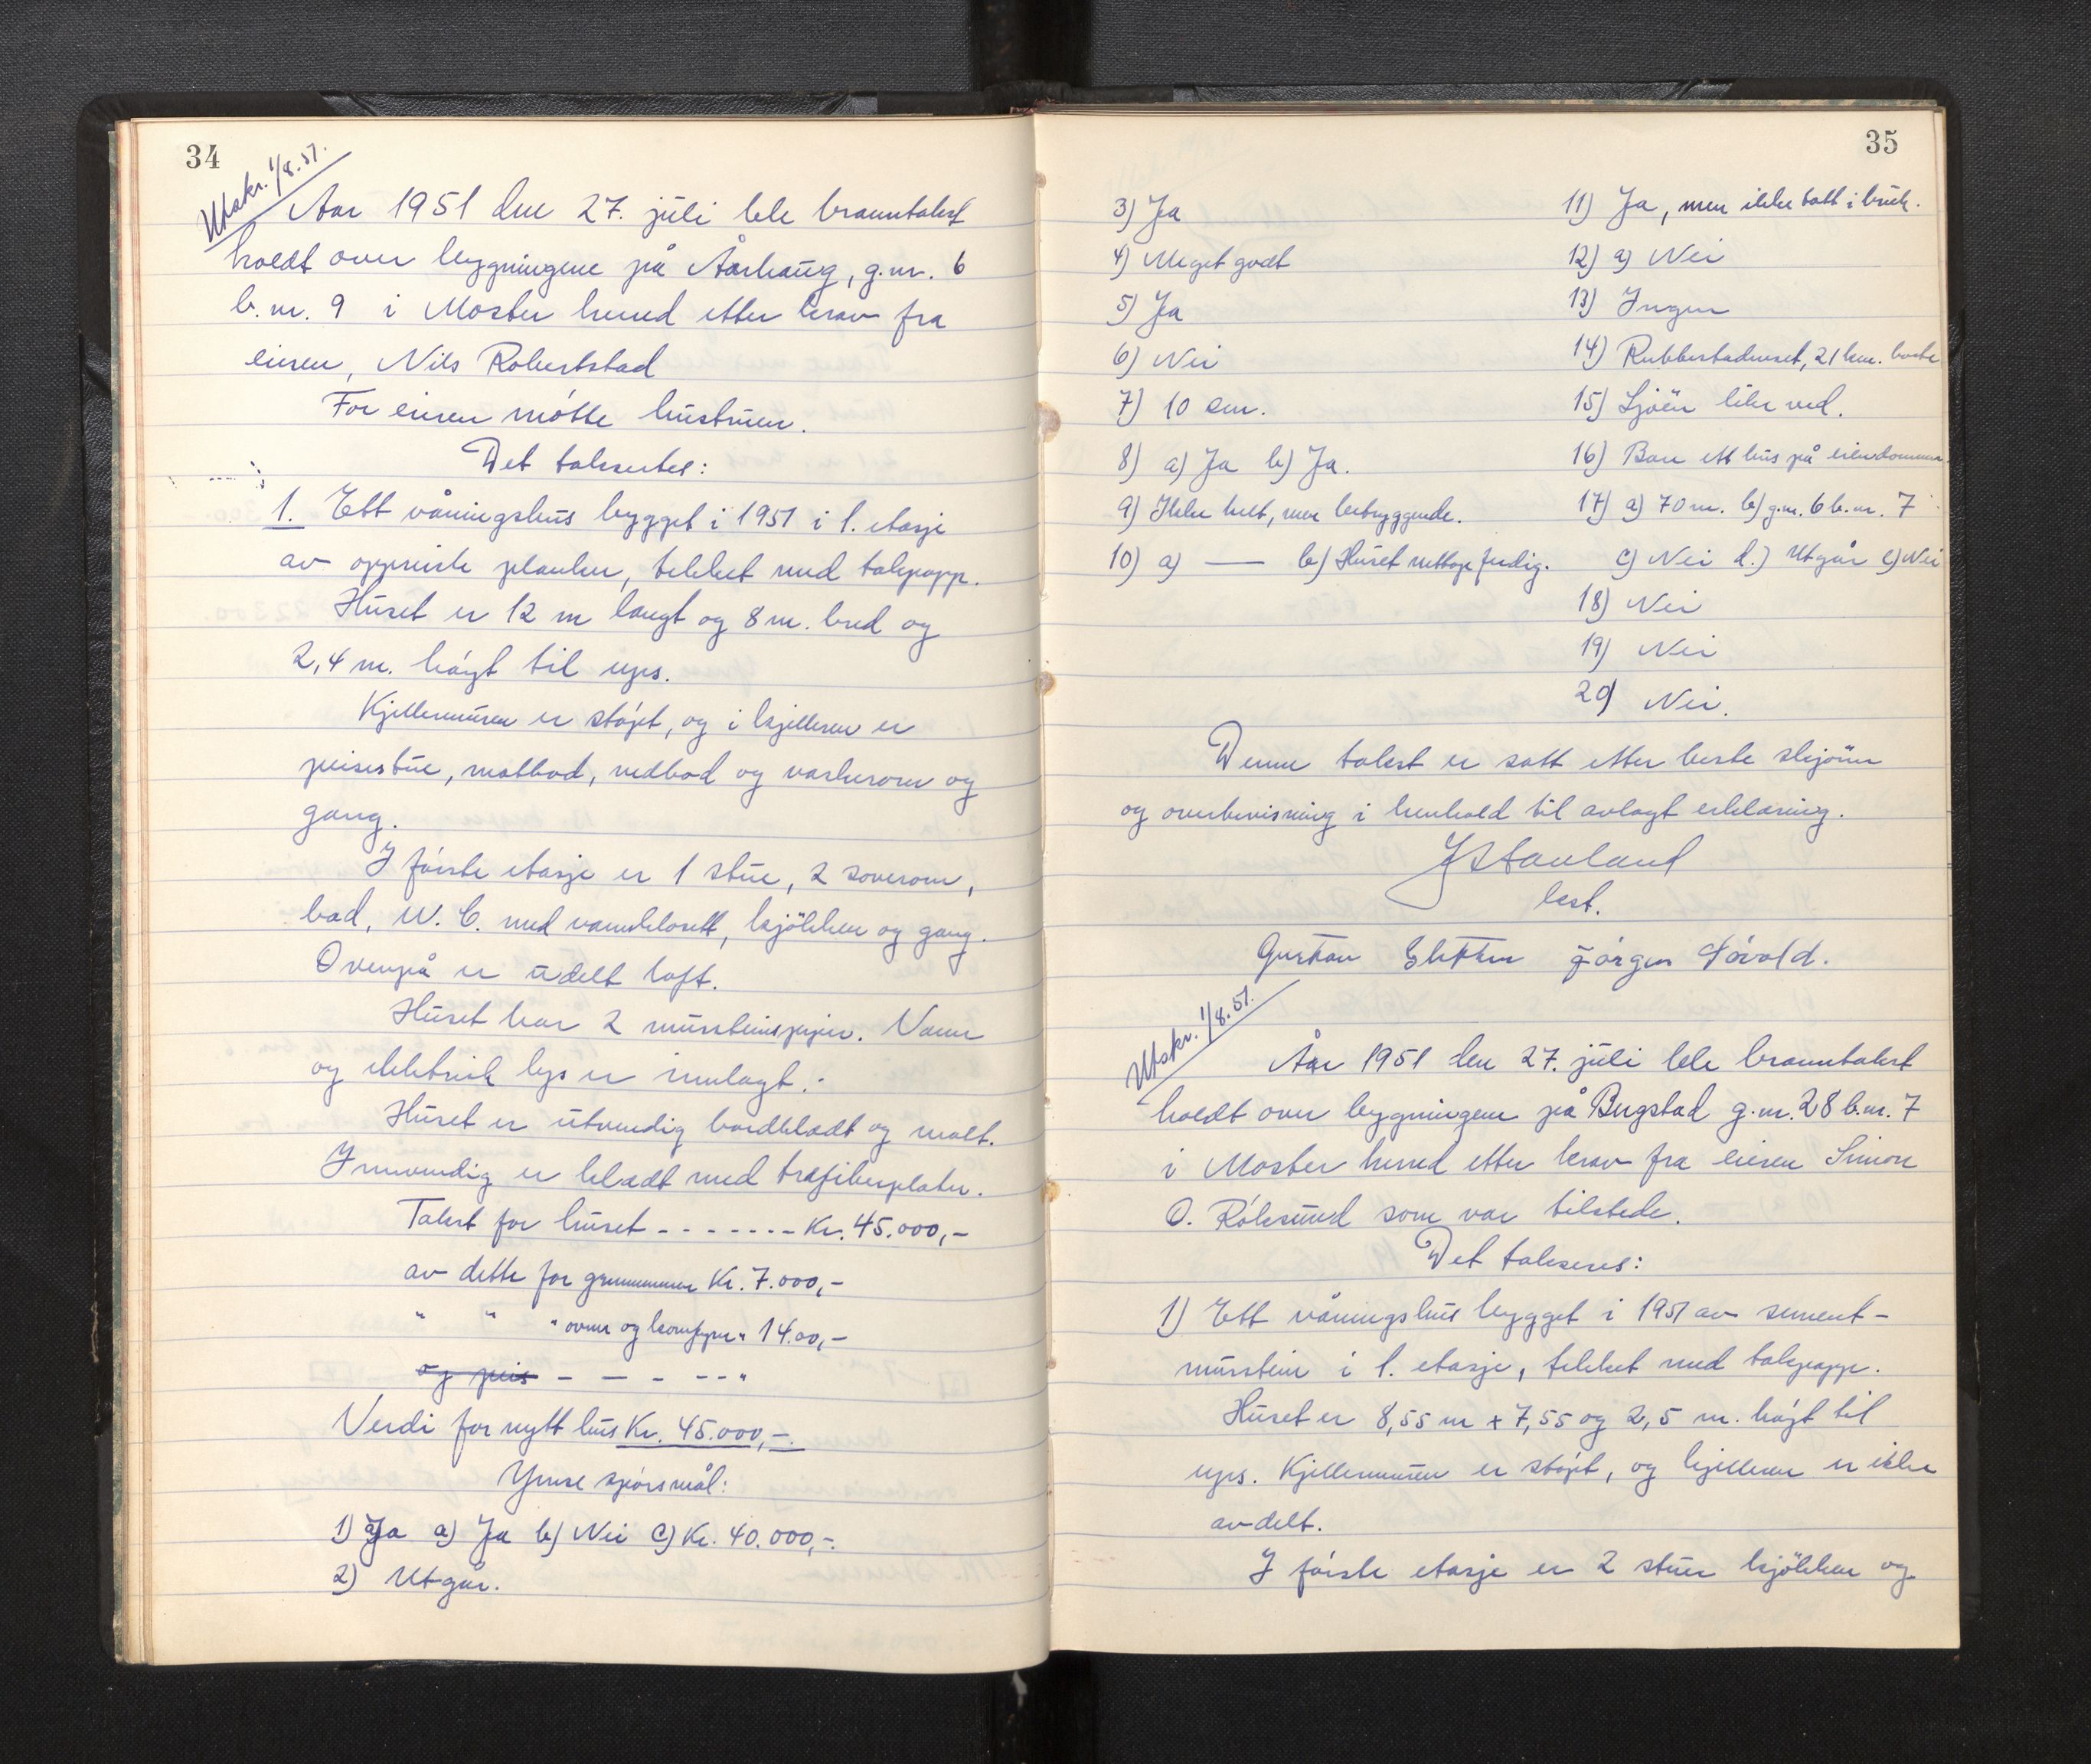 34
Utskr. 1/8.51.
Aar 1951 den 27. juli ble branntakst
holdt over bygningene på Aarhaug, g.nr. 6
b.nr. 9 i Moster herred etter krav fra
eieren, Nils Robertstad
For eieren møtte hustruen.
Det takseres:
1. Ett våningshus bygget i 1951 i 1. etasje
av oppreiste planker, tekket med takpapp.
Huset er 12 m langt og 8 m. bred og
2,4 m. høyt til ups.
Kjellermuren er støpt, og i kjelleren er
peisestue, matbod, vedbod og vaskerom og
gang.
I første etasje er 1 stue, 2 soverom,
bad, W. C. med vannklosett, kjökken og gang.
Ovenpå er udelt loft.
Huset har 2 mursteinspiper. Vann
og elektrisk lys er innlagt.
Huset er utvendig bordkledt og malt.
Innvendig er kledt med trefiberplater.
Takst for huset - - - - - - - Kr. 45.000,-
av dette for grunnmur Kr. 7.000,-
" " " ovner og komfyr " 14.00,-
og peis - - - - - "
Verdi for nytt hus Kr. 45.000,-.
Ymse spørsmål:
1) Ja a) Ja b) Nei c) Kr. 40.000,-.
2) Utgår.
35
3) Ja
4) Meget godt
5) Ja
6) Nei
7) 10 cm.
8) a) Ja b) Ja.
9) Ikke helt, men betryggende.
10) a) — b) Huset nettopp ferdig.
11) Ja, men ikke tatt i bruk.
12) a) Nei
13) Ingen
14) Rubbestadneset, 21 km. borte
15) Sjöen like ved.
16) Bare ett hus på eiendommen.
17) a) 70 m. b) g.nr. 6 b.nr. 7
c) Nei d.) Utgår e) Nei
18) Nei
19) Nei
20) Nei.
Denne takst er satt etter beste skjönn
og overbevisning i henhold til avlagt erklæring.
J Stauland
lest.
Gustav Sletten Jörgen
Utskr. 1/8.51.
Aar 1951 den 27. juli ble branntakst
holdt over bygningene på Bergstad g.nr. 28 b.nr. 7
i Moster herred etter krav fra eieren Simon
O. Røksund som var tilstede.
Det takseres:
1) Ett våningshus bygget i 1951 av sement-
murstein i 1. etasje, tekket med takpapp.
Huset er 8,55 m x 7,55 og 2,5 m. høyt til
ups. Kjellermuren er støpt, og kjelleren er ikke
avdelt.
I første etasje er 2 stuer kjökken og